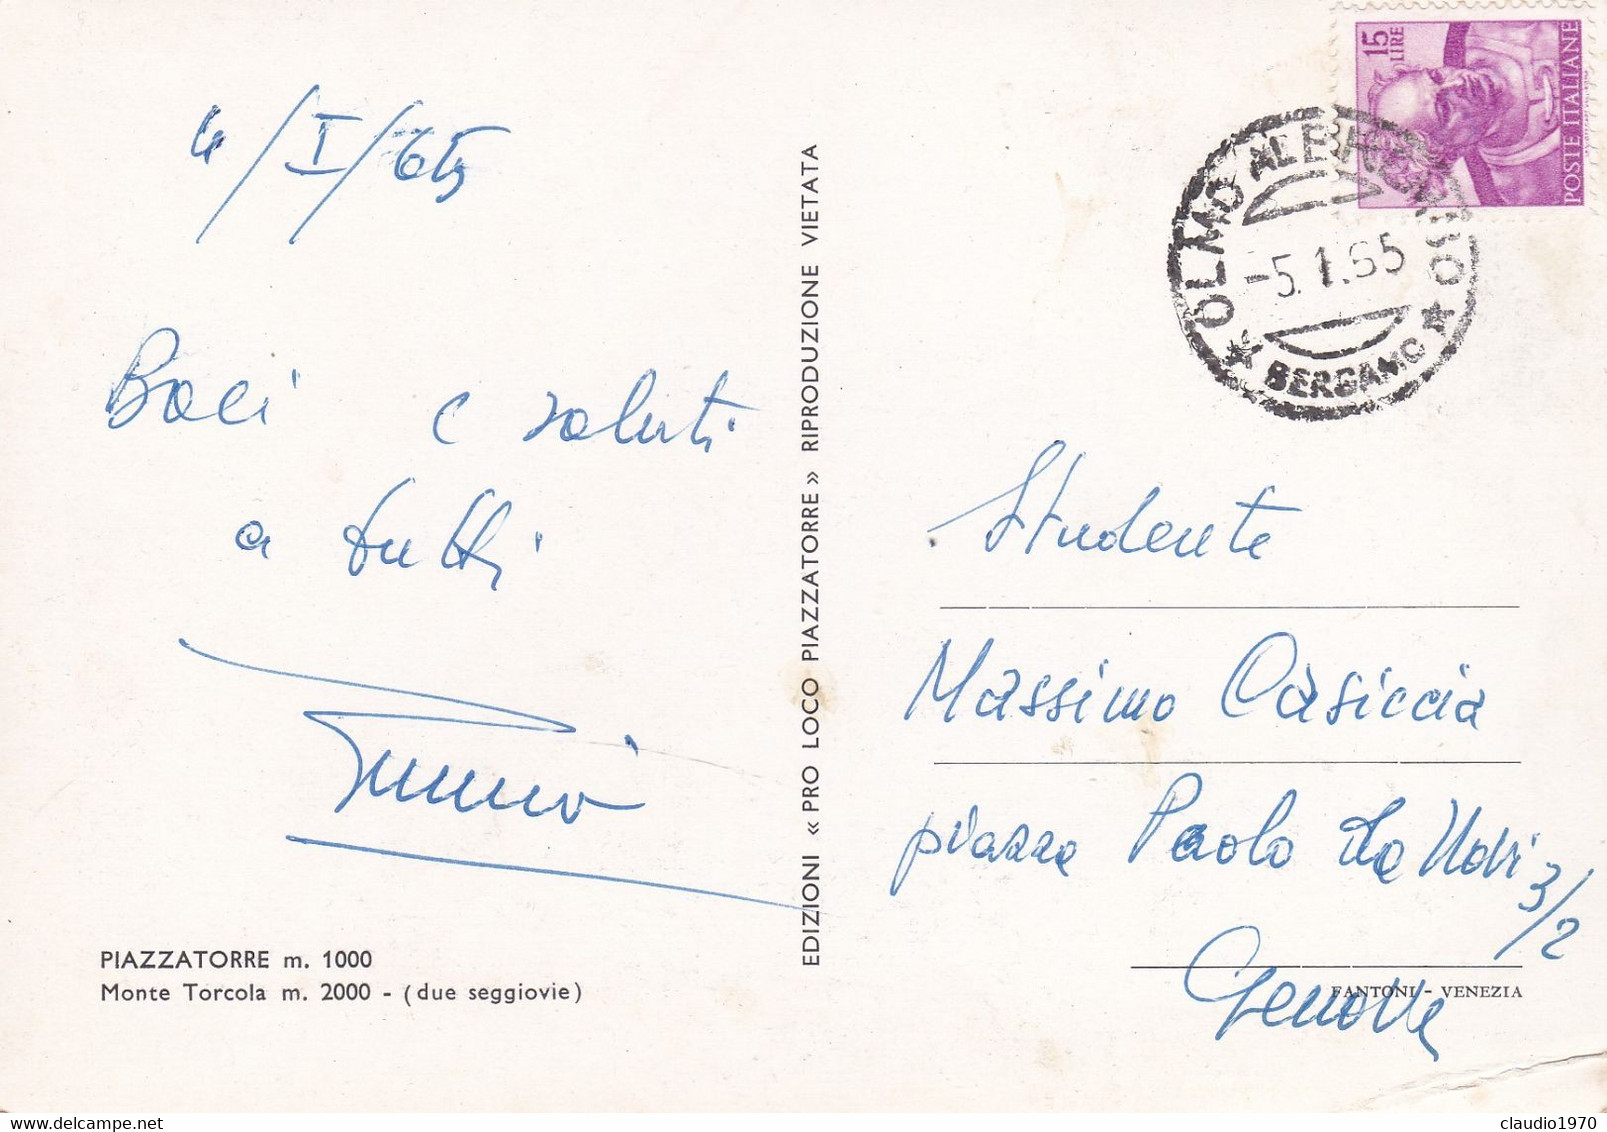 4/I/65
Baci e saluti
a tutti
PIAZZATORRE m. 1000
Monte Torcola m. 2000 - (due seggiovie)
EDIZIONI « PRO LOCO PIAZZATORRE » RIPRODUZIONE VIETATA
15 LIRE
POSTE ITALIANE
OLMO AL BREMBO
-5.1.65
BERGAMO
Studente
Massimo Casiccia
piazza Paolo da Novi
3/2
Genova
FANTONI - VENEZIA
claudio1970